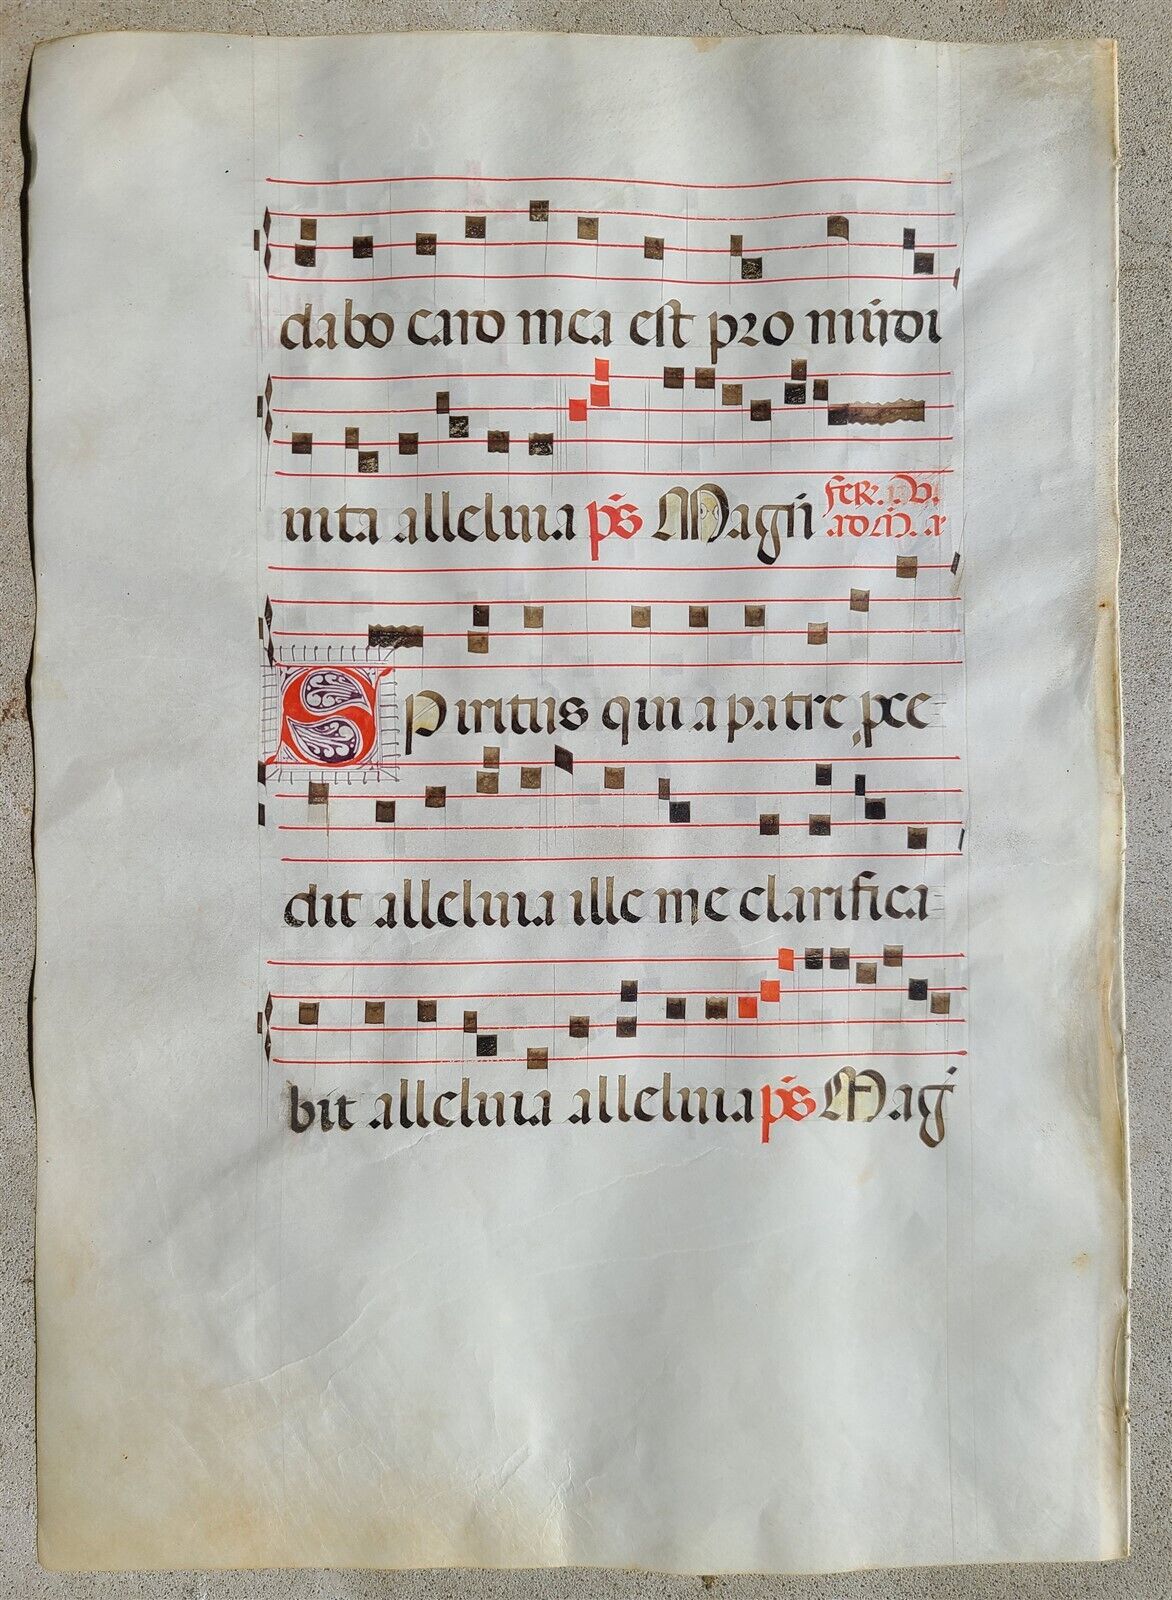 dabo caro mea est pro mūdi
uita alleluia p̄s Magn̄ feR. v.
ad M. ā
Spiritus qui a patre pce
dit alleluia ille me clarifica
bit alleluia alleluia p̄s Maḡ